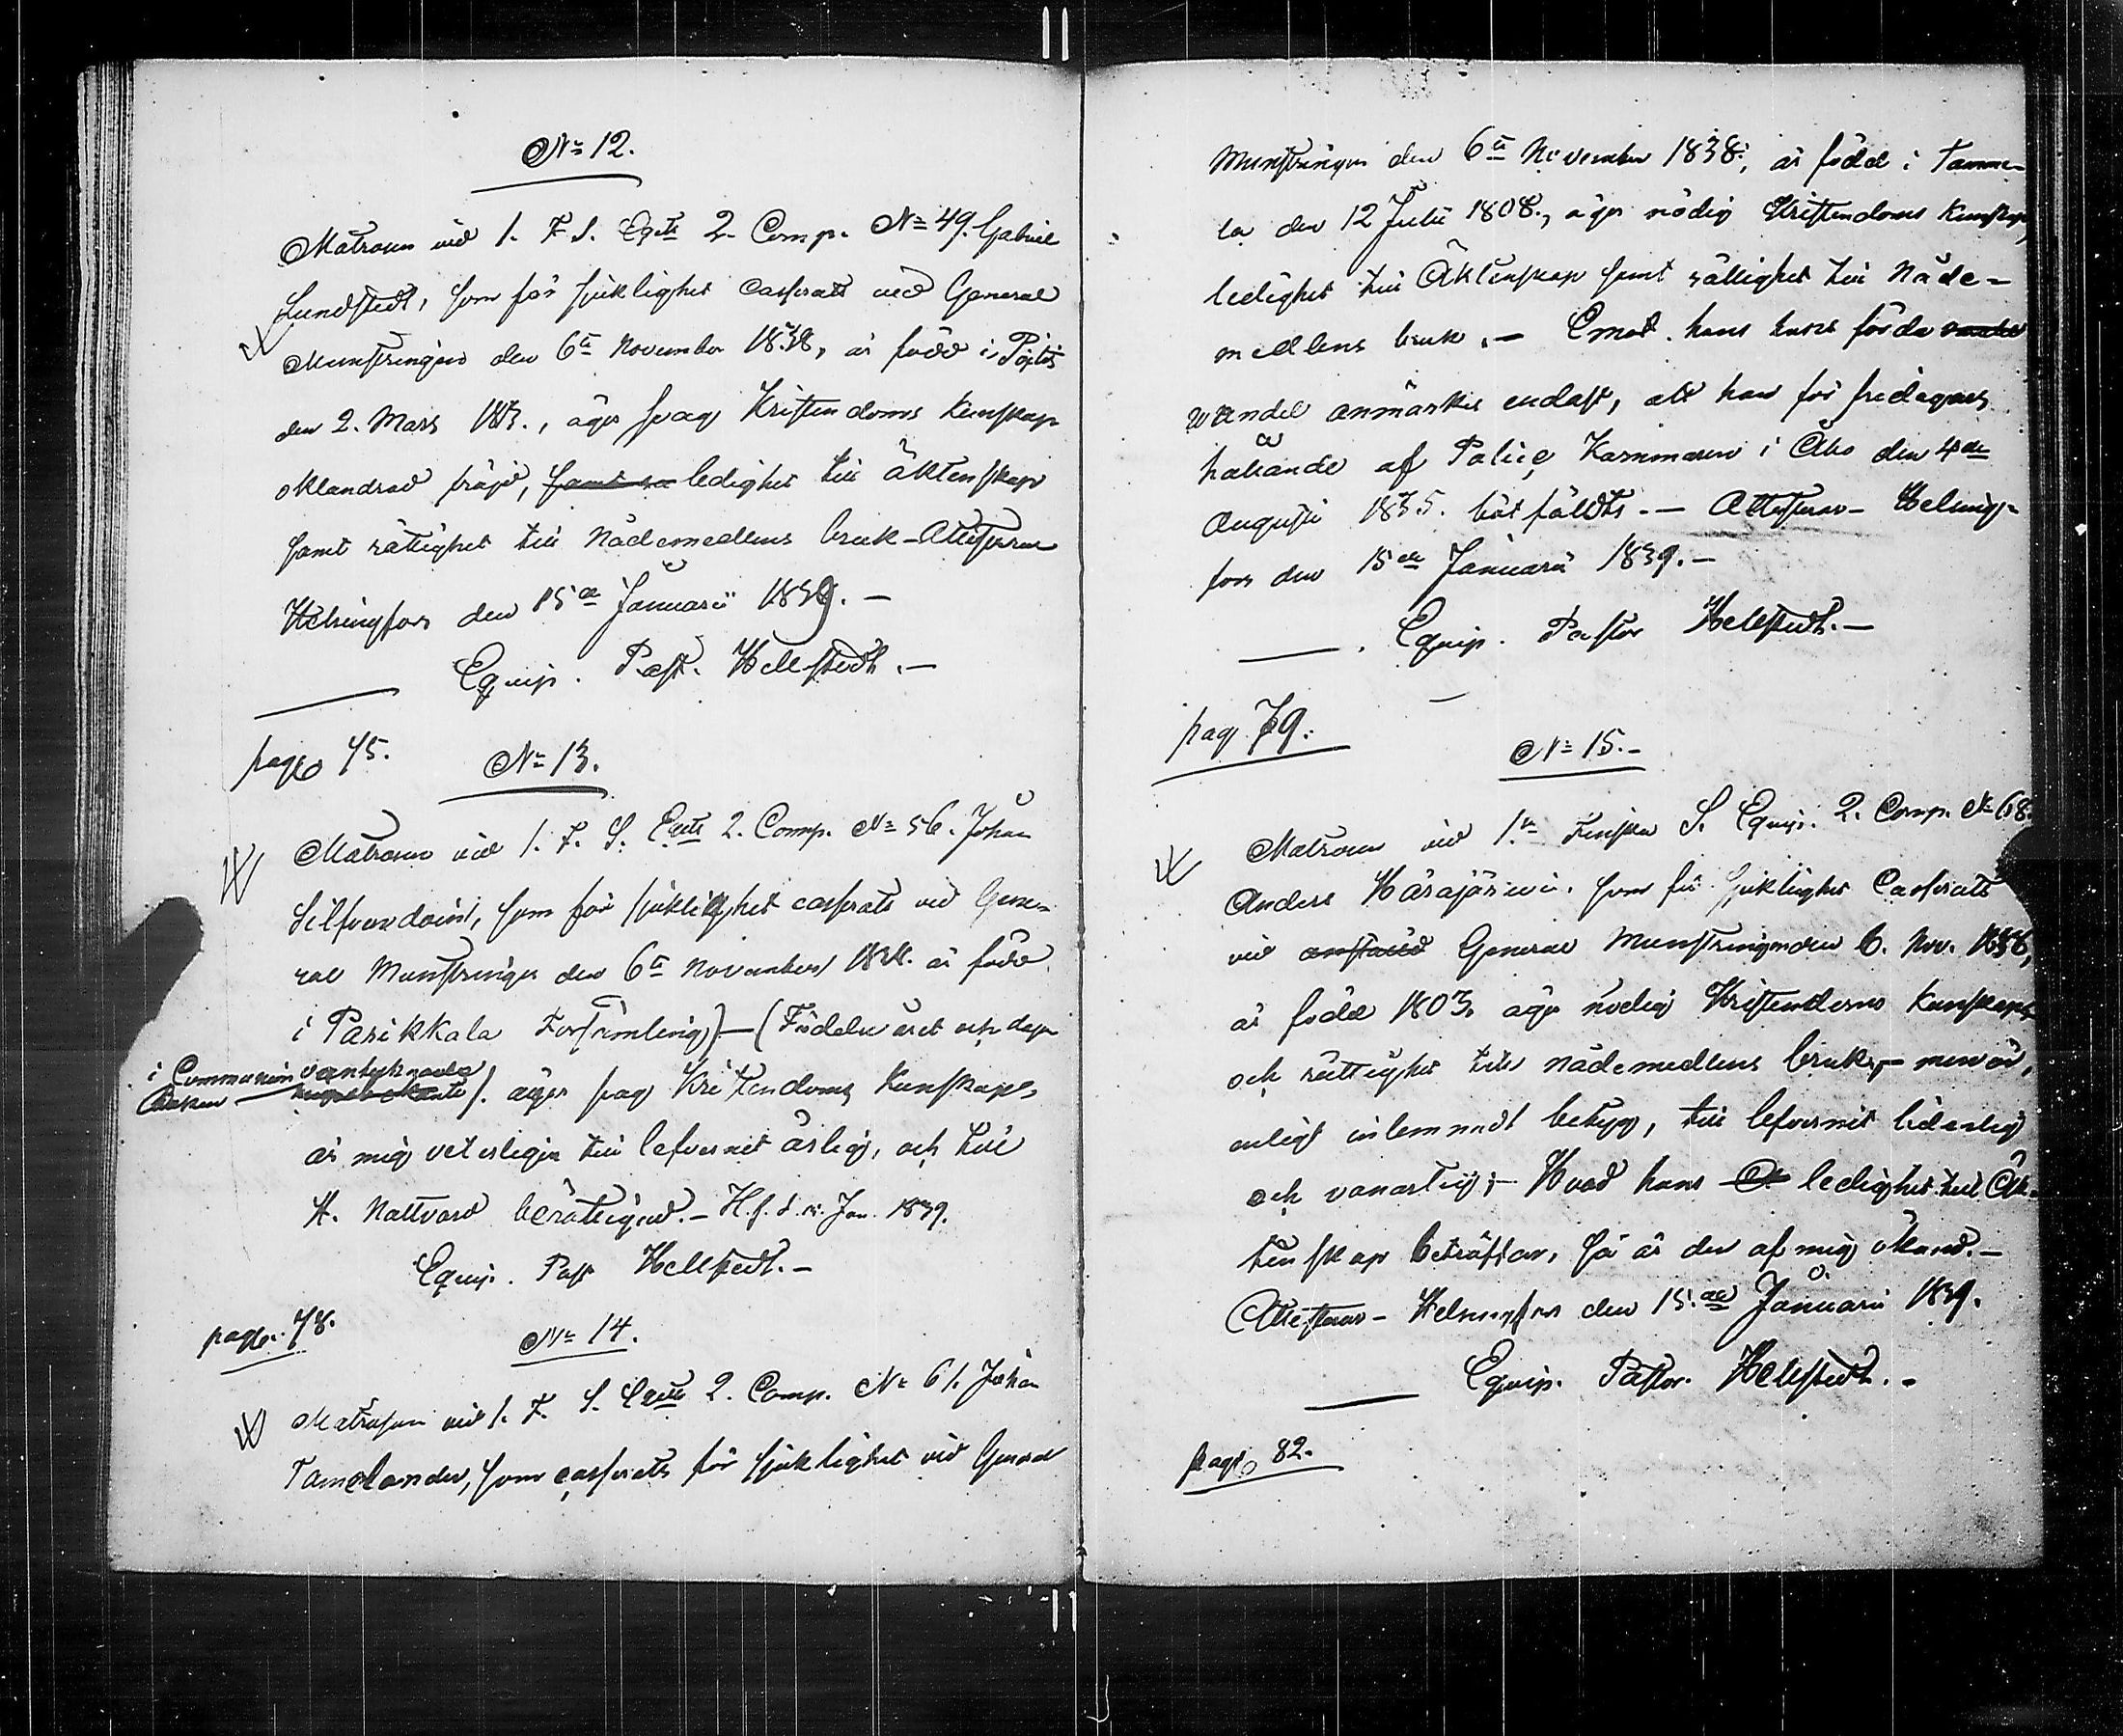 No 12.
Matrosen vid 1. F. S. Eqts 2. Comp. No 49. Gabriel
Lundstedt, som för sjuklighet casserats vid General
Munstringen den 6te November 1838, är född i Pöytis
den 2. Mars, äger svag Kristendoms Kunskap
oklandrad fräjd, samt ledighet till äktenskap
samt rättighet till Nådemedlens bruk - Attesteras
Helsingfors den 15de Januarii 1839. -
Equip. Past. Hellstedt. -
pag 75.
No 13.
Matrosen vid 1. F. S. Eqts 2. Comp. No 56. Johan
Silfverdoint, som för sjuklighet casserats vid Gene-
ral Munstringen den 6te November 1838. är född
i Parikkala Församling) - (Födelse året och dagen
i Communion vantecknade
Boken /. äger svag Kristendoms Kunskap,
är mig veterligen till lefvernet ärlig, och till
H. Nattvard berättigad. - H.f. d. 15. Jan. 1839.
Equip. Past Hellstedt. -
pag. 78.
No 14.
Matrosen vid 1. F. S. Eqts 2. Comp. No 61. Johan
Tamelander, som casserats för sjuklighet vid General
Munstringen den 6te November 1838, är född i Tamme-
la den 12 Julii 1808., äger nödig Kristendoms Kunskap,
ledighet till Äktenskap samt rättighet till Nåde-
medlens bruk. - Emot hans förda
wandel anmärkes endast, att han för
af Police Kammaren i Åbo den 4de
Augusti 1835. bötfälldts. - Attesteras - Helsing-
fors den 15de Januarii 1839. -
Equip. Pastor Hellstedt. -
pag. 79.
No 15. -
Matrosen vid 1sta Finska S. Equip. 2. Comp. No 68.
Anders Härajärwi, som för sjuklighet Casserats
vid General Munstringen den 6. Nov. 1838,
är född 1803, äger nödig Kristendoms Kunskap,
och rättighet till nådemedlens bruk, - men är,
enligt inlemnadt betyg, till lefvernet liderlig
och vanartig; - Hvad hans ledighet till Äk-
tenskap beträffar, så är den af mig okänd. -
Attesteras - Helsingfors den 15.de Januarii 1839.
Equip. Pastor. Hellstedt. -
pag. 82.